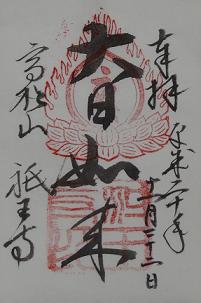 奉拝
平成二十年
十一月二十二日
大日如来
高松山
祇王寺